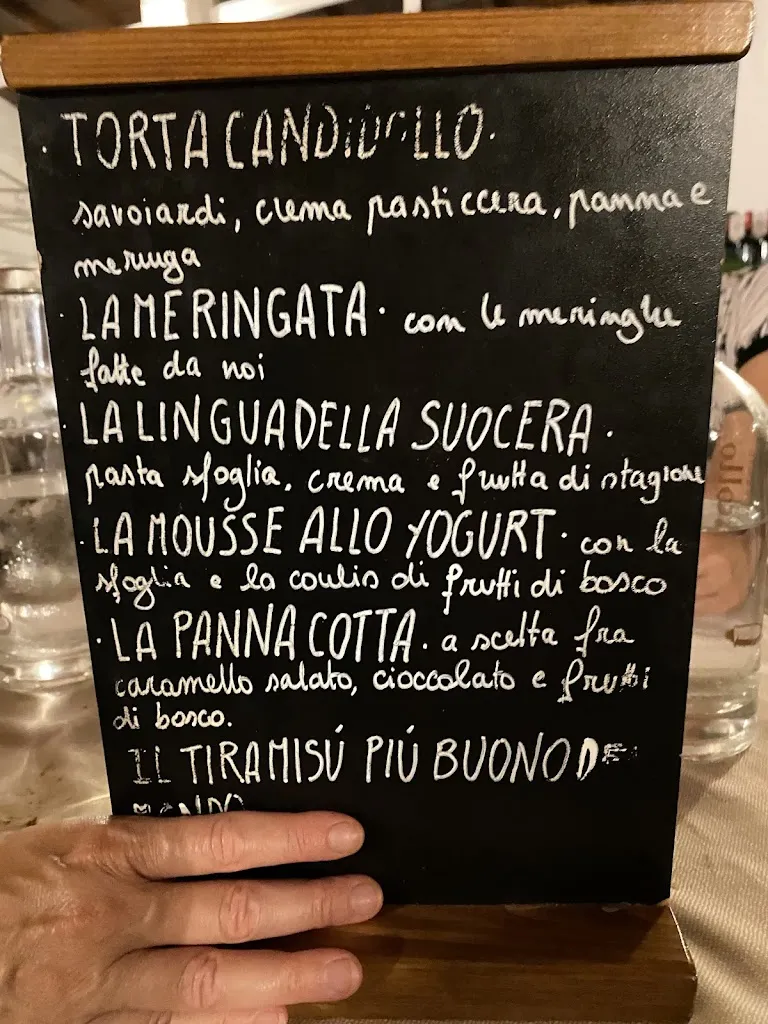 · TORTA CANDIDOLLO ·
savoiardi, crema pasticcera, panna e
meringa
· LA MERINGATA · con le meringhe
fatte da noi
· LA LINGUA DELLA SUOCERA ·
pasta sfoglia, crema e frutta di stagione
· LA MOUSSE ALLO YOGURT · con la
sfoglia e la coulis di frutti di bosco
· LA PANNA COTTA · a scelta fra
caramello salato, cioccolato e frutti
di bosco.
IL TIRAMISÚ PIÚ BUONO DEL
MONDO